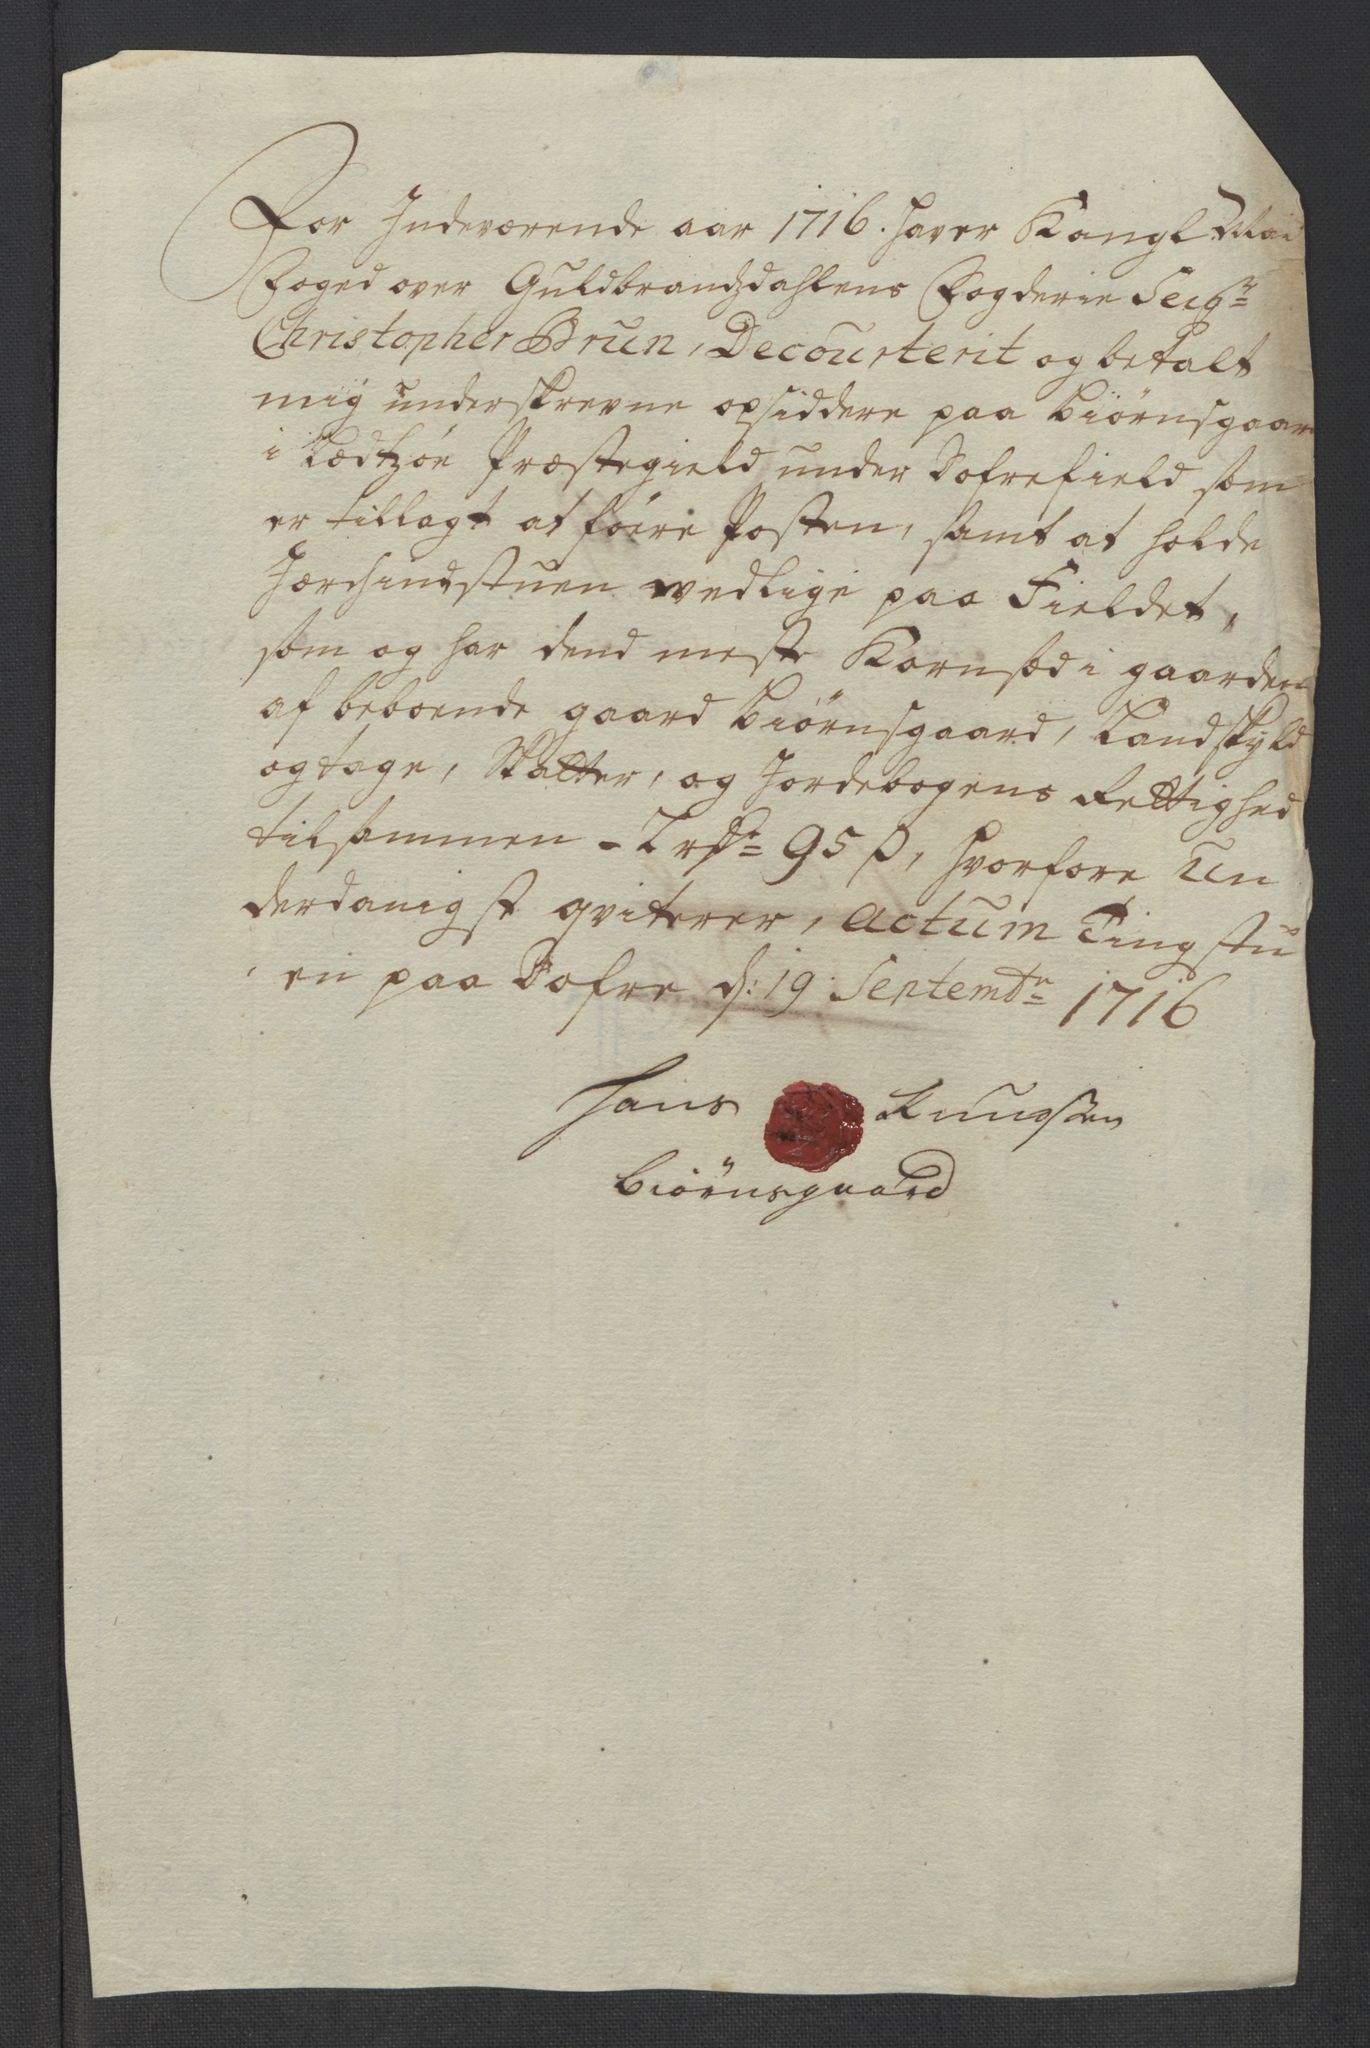 For Indeværende aar 1716. haver Kongl. Mai
Foged over Guldbrandzdahlens Fogderie Seigr
Christopher Brun, Decourterit og betalt
mig underskrevne opsiddere paa Biørnsgaar
i Lædtzöe Præstegield under Dofrefield som
er tillagt at föere Posten, samt at holde
Hierchindstuen vedlige paa Fieldet,
som og har dend meste Kornsæd i gaarden
af beboende gaard Biörnsgaard, Landskyld
og tage, Skatter, og Jordebogens Rettighed
tilsammen - 2 rdr 95 β, hvorfore Un
derdanigst qviterer, Actum Tingstu
en paa Dofre d: 19 Septembr 1716
Hans Knudsen
Biörnsgaard